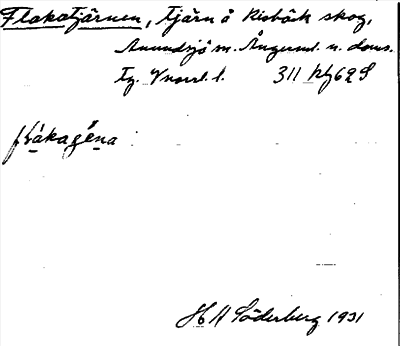 Flakatjärnen, tjärn å Risbäck skog,
Anundsjö sn. Ångerml. n. doms.
tg. Vnorrl. l. 311 Hf 62 S
flákagè̂na
H A Söderberg 1931